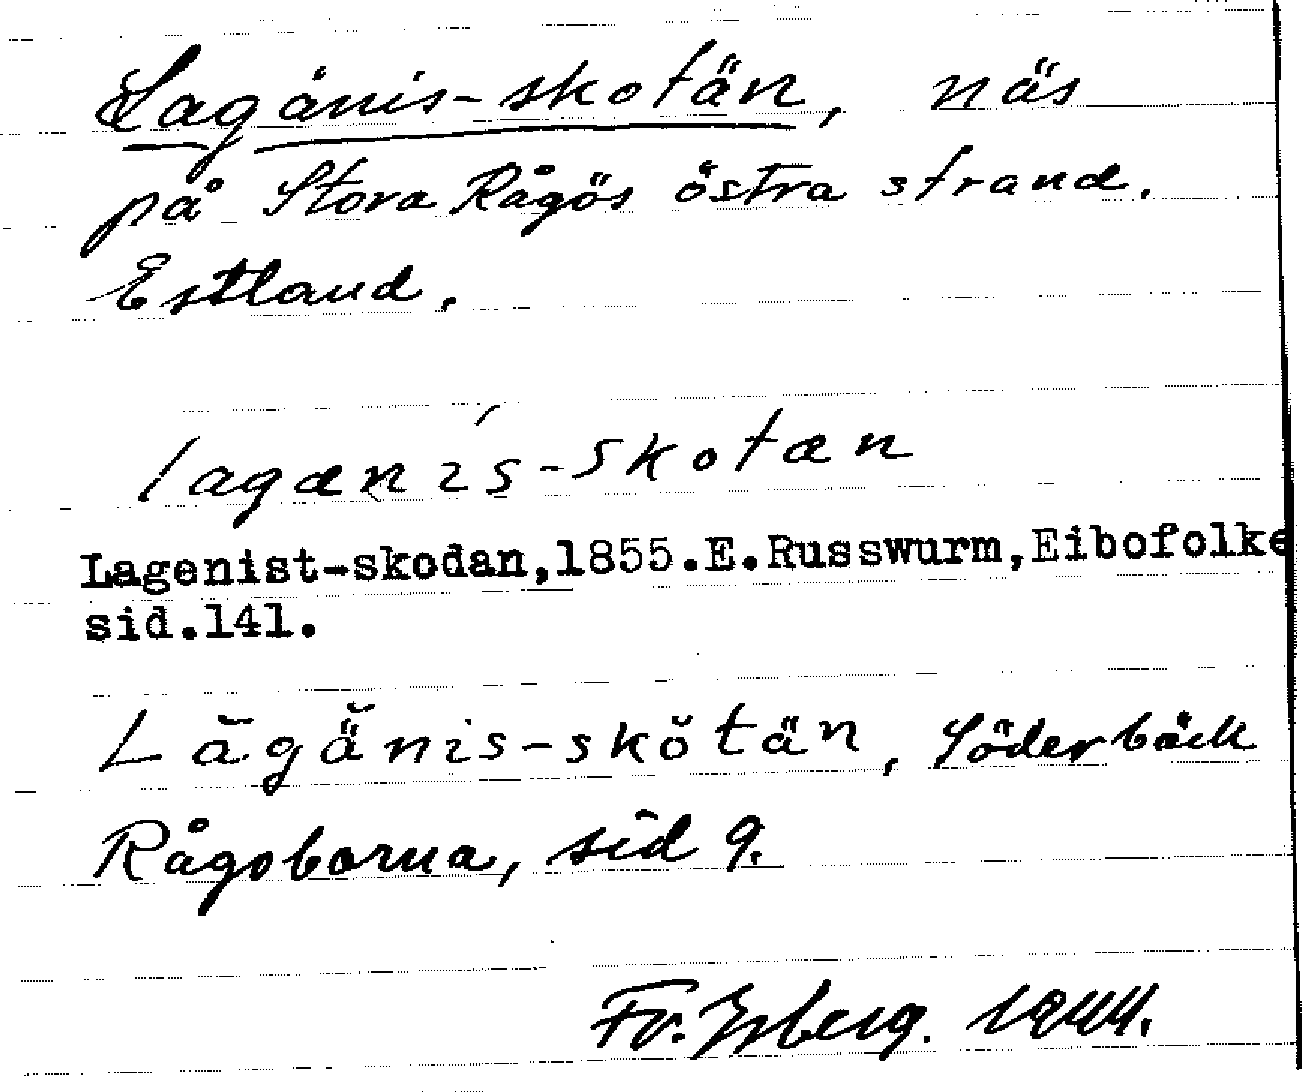 Lagänis-skotän, näs
på Stora Rågös östra strand.
Estland.
lagæni's-skotæn
Lagenist-skodan,1855.E.Russwurm,Eibofolke
sid.141.
Lāgä̆nis-skŏtän, Söderbäck
Rågöborna, sid 9.
Fr. Isberg. 1944.